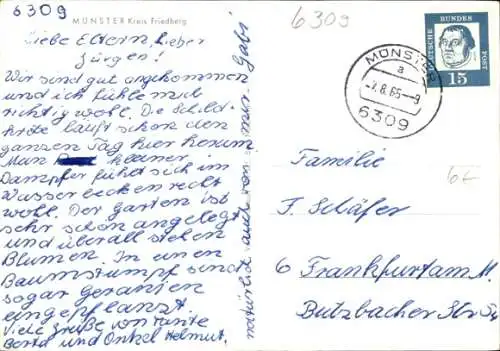 6309
MÜNSTER Kreis Friedberg
6309
Liebe Eltern, lieber
Jürgen!
Wir sind gut angekommen
und ich fühle mich
richtig wohl. Die Schild-
kröte läuft schon den
ganzen Tag hier herum.
Man kleiner
Dampfer fühlt sich im
Wasserbecken recht
wohl. Der Garten ist
sehr schön angelegt
und überall stehen
Blumen. In einen
Baumstumpf sind
sogar Geranien
eingepflanzt.
Viele Grüße von Tante
Berta und Onkel Helmut.
natürlich auch von mir. Gabi
MÜNSTER
a
8.65-9
6309
DEUTSCHE BUNDESPOST
15
LUTHER
Familie
F. Schäfer
6 Frankfurt am M.
Butzbacher Str. 54
6f